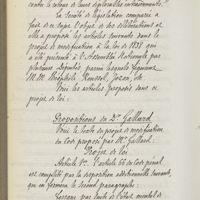 contre le retour de leurs déplorables entraînements.
La Société de législation comparée a
fait de ce sujet l'objet de ses délibérations et
elle a proposé les articles suivants dans le
projet de modification à la loi de 1838 qui a été
présenté à l'Assemblée Nationale par
plusieurs Députés parmi lesquels figurent
M.M. Théophile Roussel, Jozon, etc.
Voici les articles proposés dans ce
projet de loi :
Propositions du Dr Gallard
Voici le texte du projet de modification
du code proposé par Mr Gallard :
Projet de loi
Article 1er. L'article 66 du code pénal
est complété par la disposition additionnelle suivante,
qui en formera le second paragraphe :
Lorsque par suite de l'état mental de